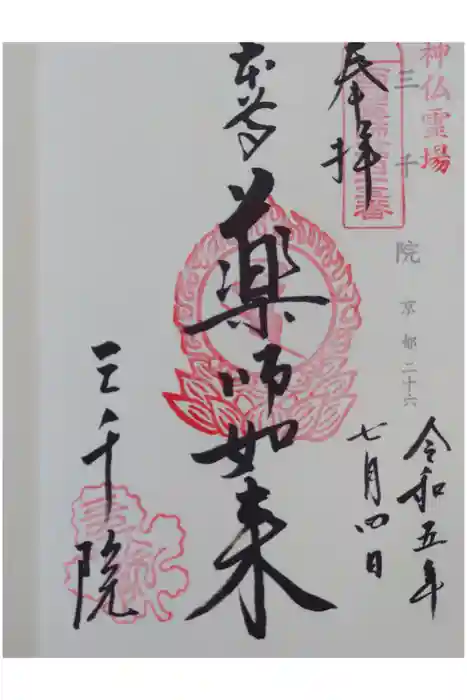 神仏霊場
三千院 京都二十六
奉拝
令和五年
七月四日
本尊
薬師如来
三千院